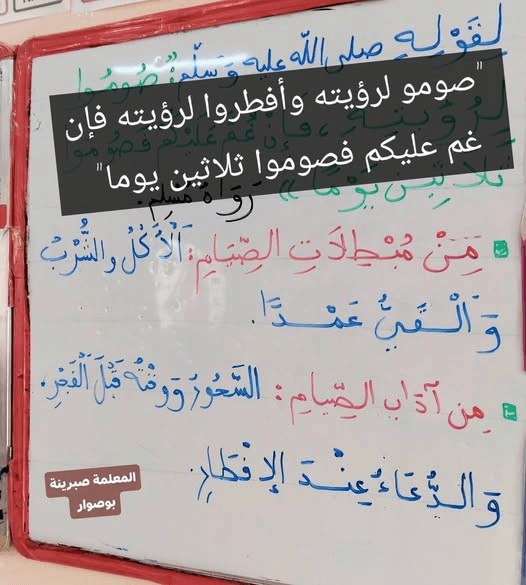 لِقَوْلِهِ صلى الله عليه وَسَلَّم: "صُومُوا
لِرُؤْيَتِهِ، فَإِنْ غُمَّ عَلَيْكُم فَصُومُوا
ثَلَاثِينَ يَوْمًا» رَوَاهُ مُسْلِم.
"صومو لرؤيته وأفطروا لرؤيته فإن
غم عليكم فصوموا ثلاثين يوما"
مِنْ مُبْطِلَاتِ الصِّيَامِ: اَلْأَكْلُ والشُّرْبُ
وَالْقَيْءُ عَمْدًا.
مِن آدَاب الصِّيامِ: السَّحُورُ وَوَقْتُهُ قَبْلَ الْفَجْرِ.
وَالدُّعَاءُ عِنْدَ الإِفْطَارِ.
المعلمة صبرينة
بوصوار